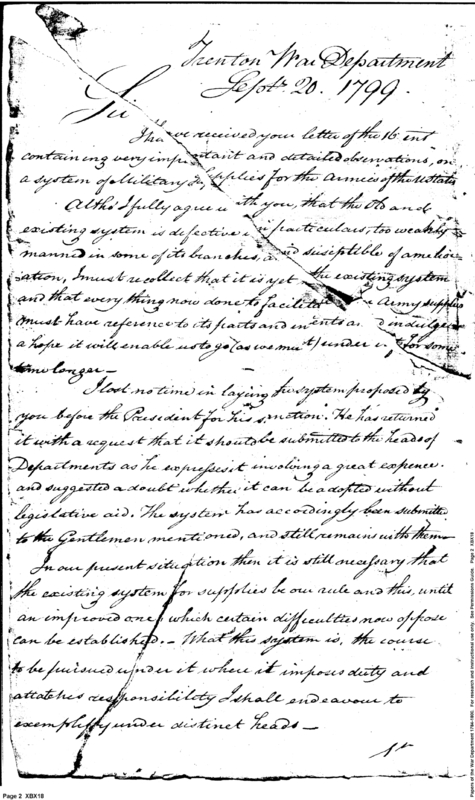 Trenton War Department
Septr. 20. 1799.
Sir
I have received your letter of the 16 inst
containing very important and detailed observations, on
a system of Military Supplies for the Armies of the UStates
Altho' I fully agree with you, that the Old and
existing system is defective in particulars, too weakly
manned in some of its branches, and susceptible of amelior
ation, I must recollect that it is yet the existing system
and that every thing now done to facilitate Army supplies
must have reference to its parts and and indulge
a hope it will enable us to go (as we must) under it, for some
time longer—
I lost no time in laying the system proposed by
you before the President for his sanction. He has returned
it with a request that it should be submitted to the heads of
Departments as he expresses it involving a great expence.
and suggested a doubt whether it can be adopted without
legislative aid. The system has accordingly been submitted
to the Gentlemen mentioned, and still remains with them—
In our present situation then it is still necessary that
the existing system for supplies be our rule and this, until
an improved one, which certain difficulties now oppose
can be established.— What this system is, the course
to be pursued under it where it imposes duty and
attaches responsibility I shall endeavour to
exemplify under distinct heads—
1st
Page 2 XBX18
Papers of the War Department 1784-1800. For research and instructional use only. See Permissions Guide. Page 2 XBX18